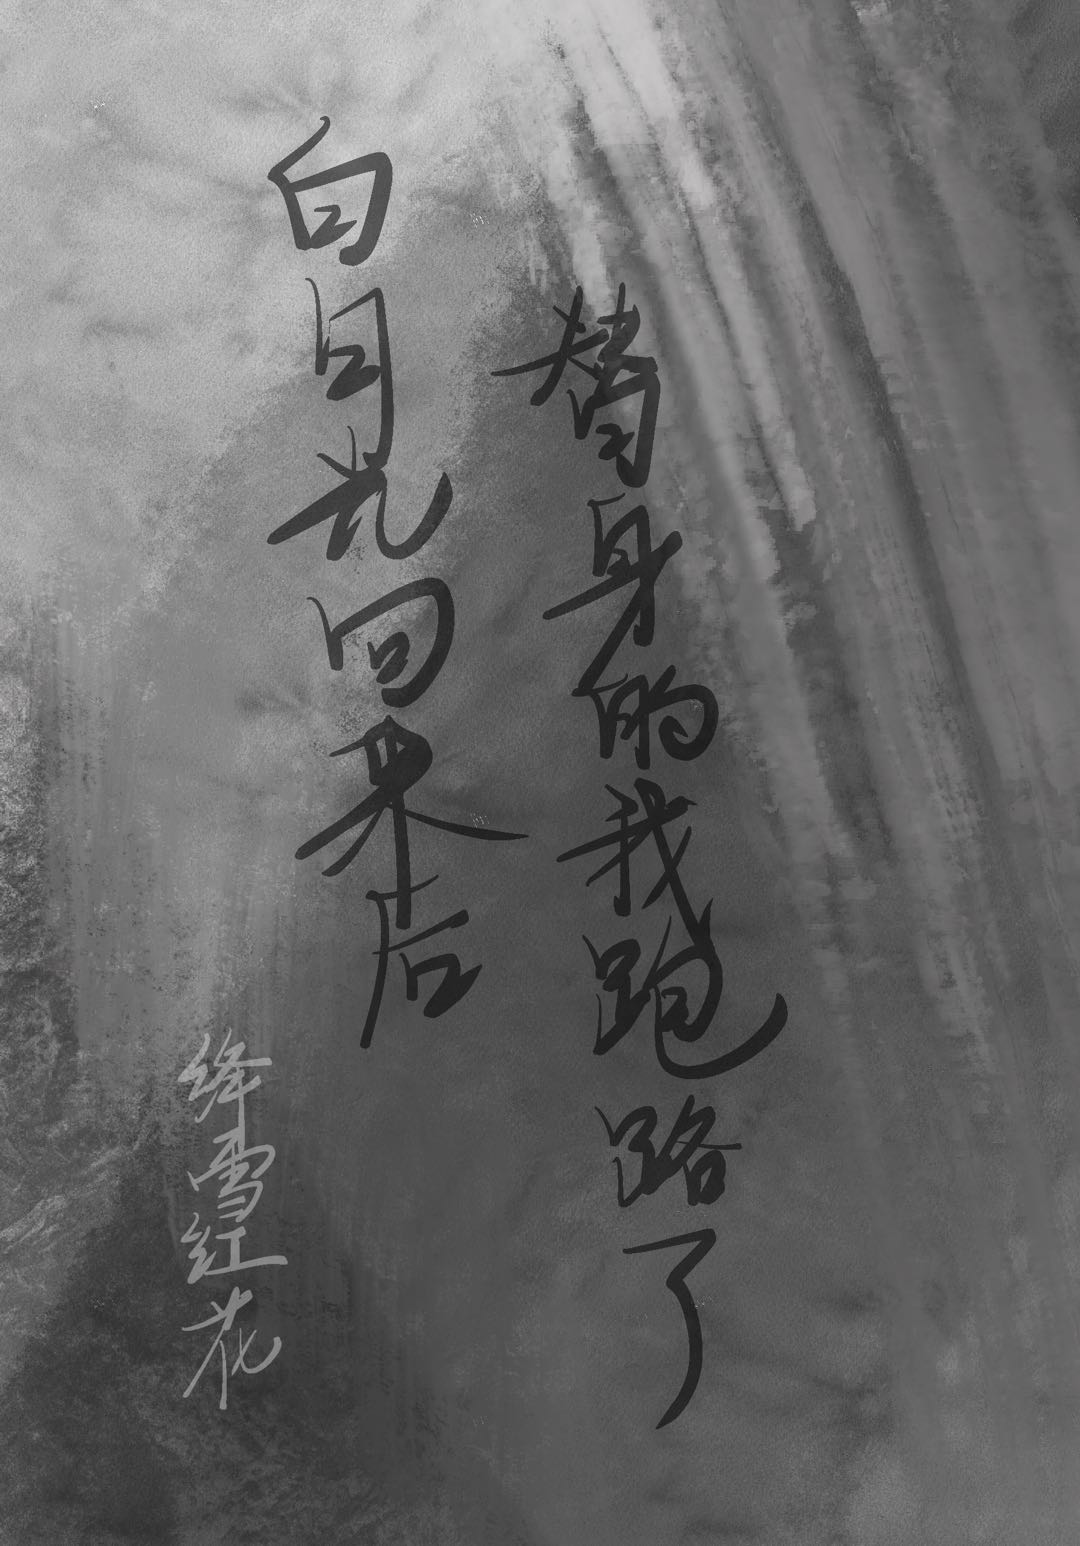 白月光回来后
替身的我跑路了
绛雪红花